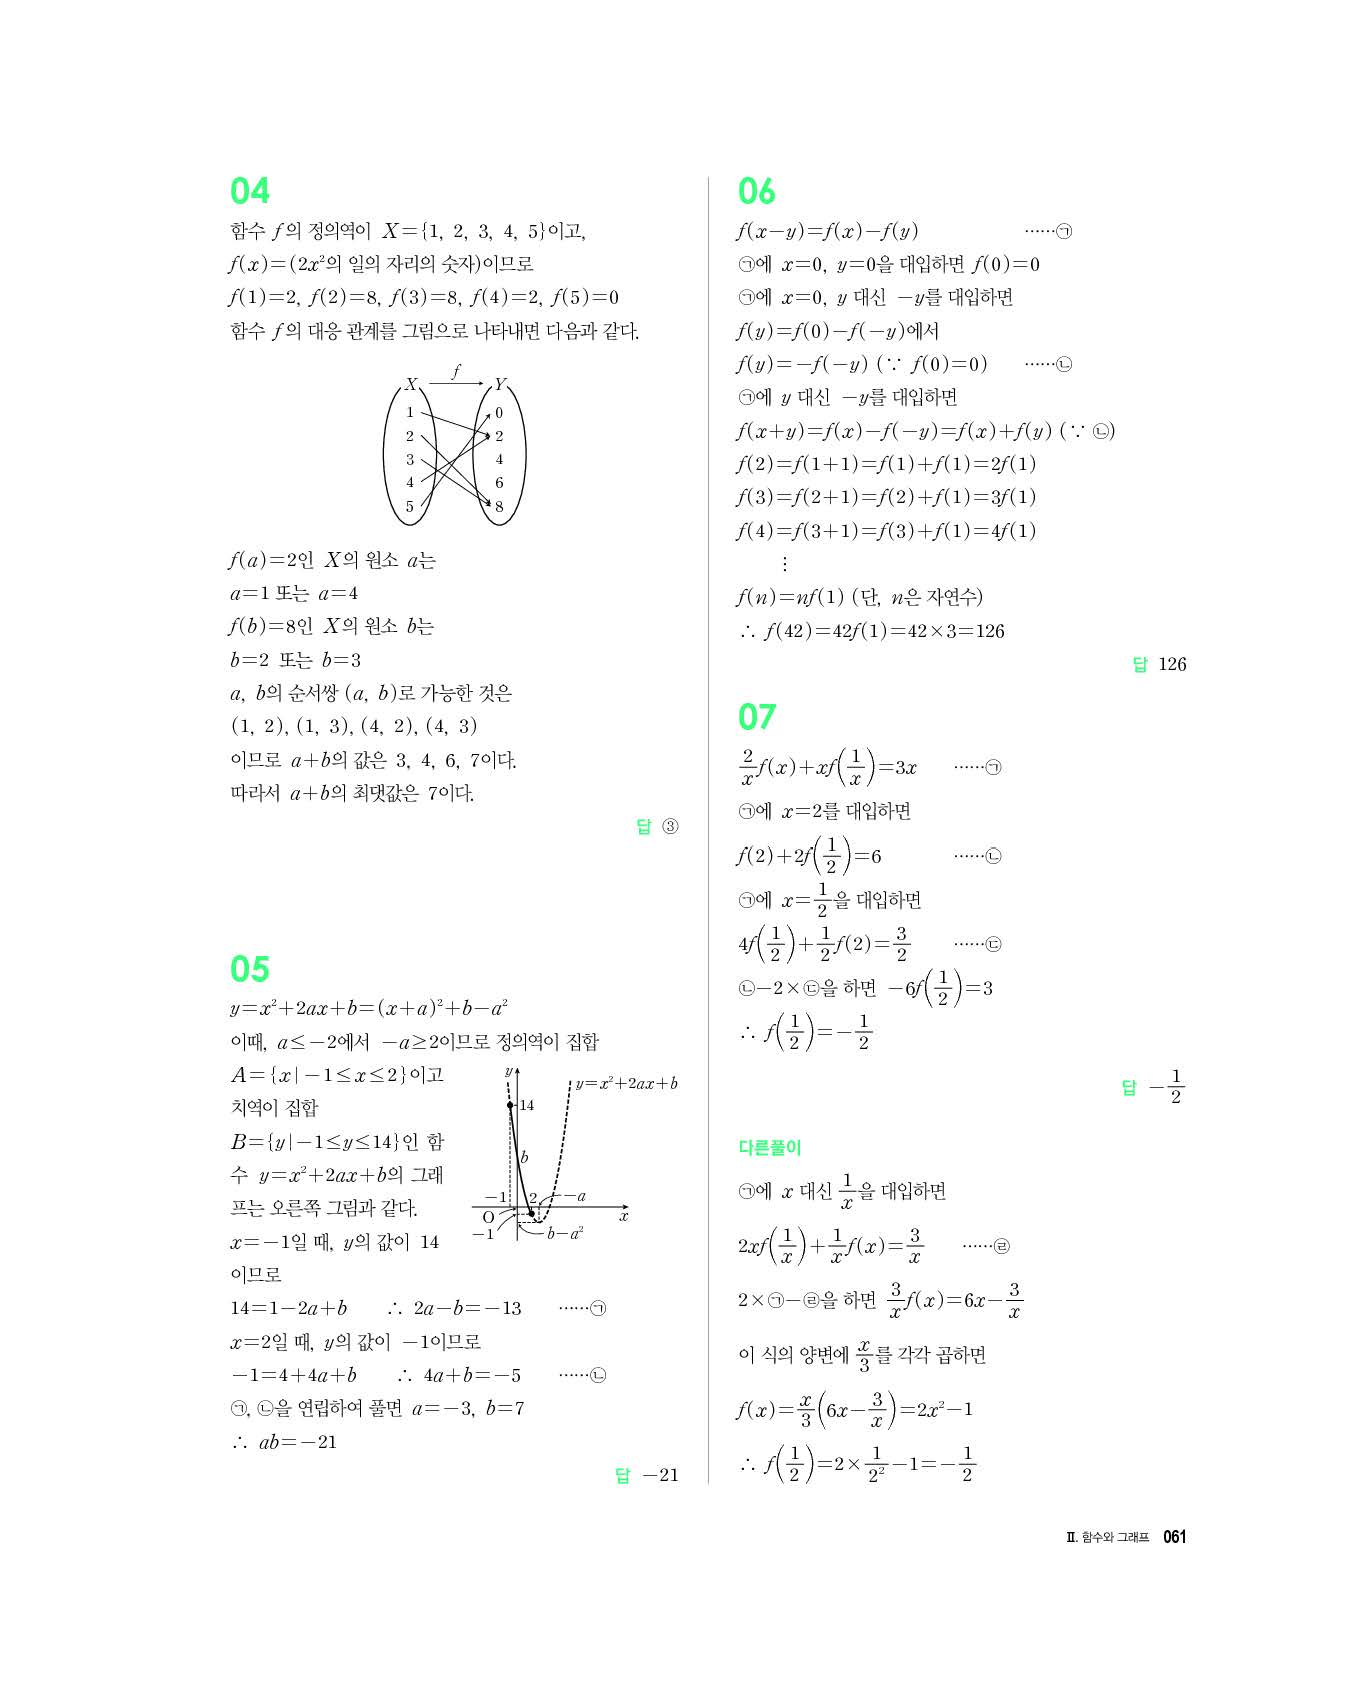 04
함수 f의 정의역이 X={1, 2, 3, 4, 5}이고,
f(x)=(2x²의 일의 자리의 숫자)이므로
f(1)=2, f(2)=8, f(3)=8, f(4)=2, f(5)=0
함수 f의 대응 관계를 그림으로 나타내면 다음과 같다.
f
X Y
1 0
2 2
3 4
4 6
5 8
f(a)=2인 X의 원소 a는
a=1 또는 a=4
f(b)=8인 X의 원소 b는
b=2 또는 b=3
a, b의 순서쌍 (a, b)로 가능한 것은
(1, 2), (1, 3), (4, 2), (4, 3)
이므로 a+b의 값은 3, 4, 6, 7이다.
따라서 a+b의 최댓값은 7이다.
답 ③
05
y=x²+2ax+b=(x+a)²+b-a²
이때, a≤-2에서 -a≥2이므로 정의역이 집합
A={x|-1≤x≤2}이고
치역이 집합
B={y|-1≤y≤14}인 함
수 y=x²+2ax+b의 그래
프는 오른쪽 그림과 같다.
x=-1일 때, y의 값이 14
이므로
y
y=x²+2ax+b
14
b
-1 2 -a
O x
-1 b-a²
14=1-2a+b ∴ 2a-b=-13 ……㉠
x=2일 때, y의 값이 -1이므로
-1=4+4a+b ∴ 4a+b=-5 ……㉡
㉠, ㉡을 연립하여 풀면 a=-3, b=7
∴ ab=-21
답 -21
06
f(x-y)=f(x)-f(y) ……㉠
㉠에 x=0, y=0을 대입하면 f(0)=0
㉠에 x=0, y 대신 -y를 대입하면
f(y)=f(0)-f(-y)에서
f(y)=-f(-y) (∵ f(0)=0) ……㉡
㉠에 y 대신 -y를 대입하면
f(x+y)=f(x)-f(-y)=f(x)+f(y) (∵ ㉡)
f(2)=f(1+1)=f(1)+f(1)=2f(1)
f(3)=f(2+1)=f(2)+f(1)=3f(1)
f(4)=f(3+1)=f(3)+f(1)=4f(1)
⋮
f(n)=nf(1) (단, n은 자연수)
∴ f(42)=42f(1)=42×3=126
답 126
07
2/x f(x)+xf(1/x)=3x ……㉠
㉠에 x=2를 대입하면
f(2)+2f(1/2)=6 ……㉡
㉠에 x=1/2을 대입하면
4f(1/2)+1/2 f(2)=3/2 ……㉢
㉡-2×㉢을 하면 -6f(1/2)=3
∴ f(1/2)=-1/2
답 -1/2
다른풀이
㉠에 x 대신 1/x을 대입하면
2xf(1/x)+1/x f(x)=3/x ……㉣
2×㉠-㉣을 하면 3/x f(x)=6x-3/x
이 식의 양변에 x/3를 각각 곱하면
f(x)=x/3(6x-3/x)=2x²-1
∴ f(1/2)=2×1/2²-1=-1/2
Ⅱ. 함수와 그래프 061